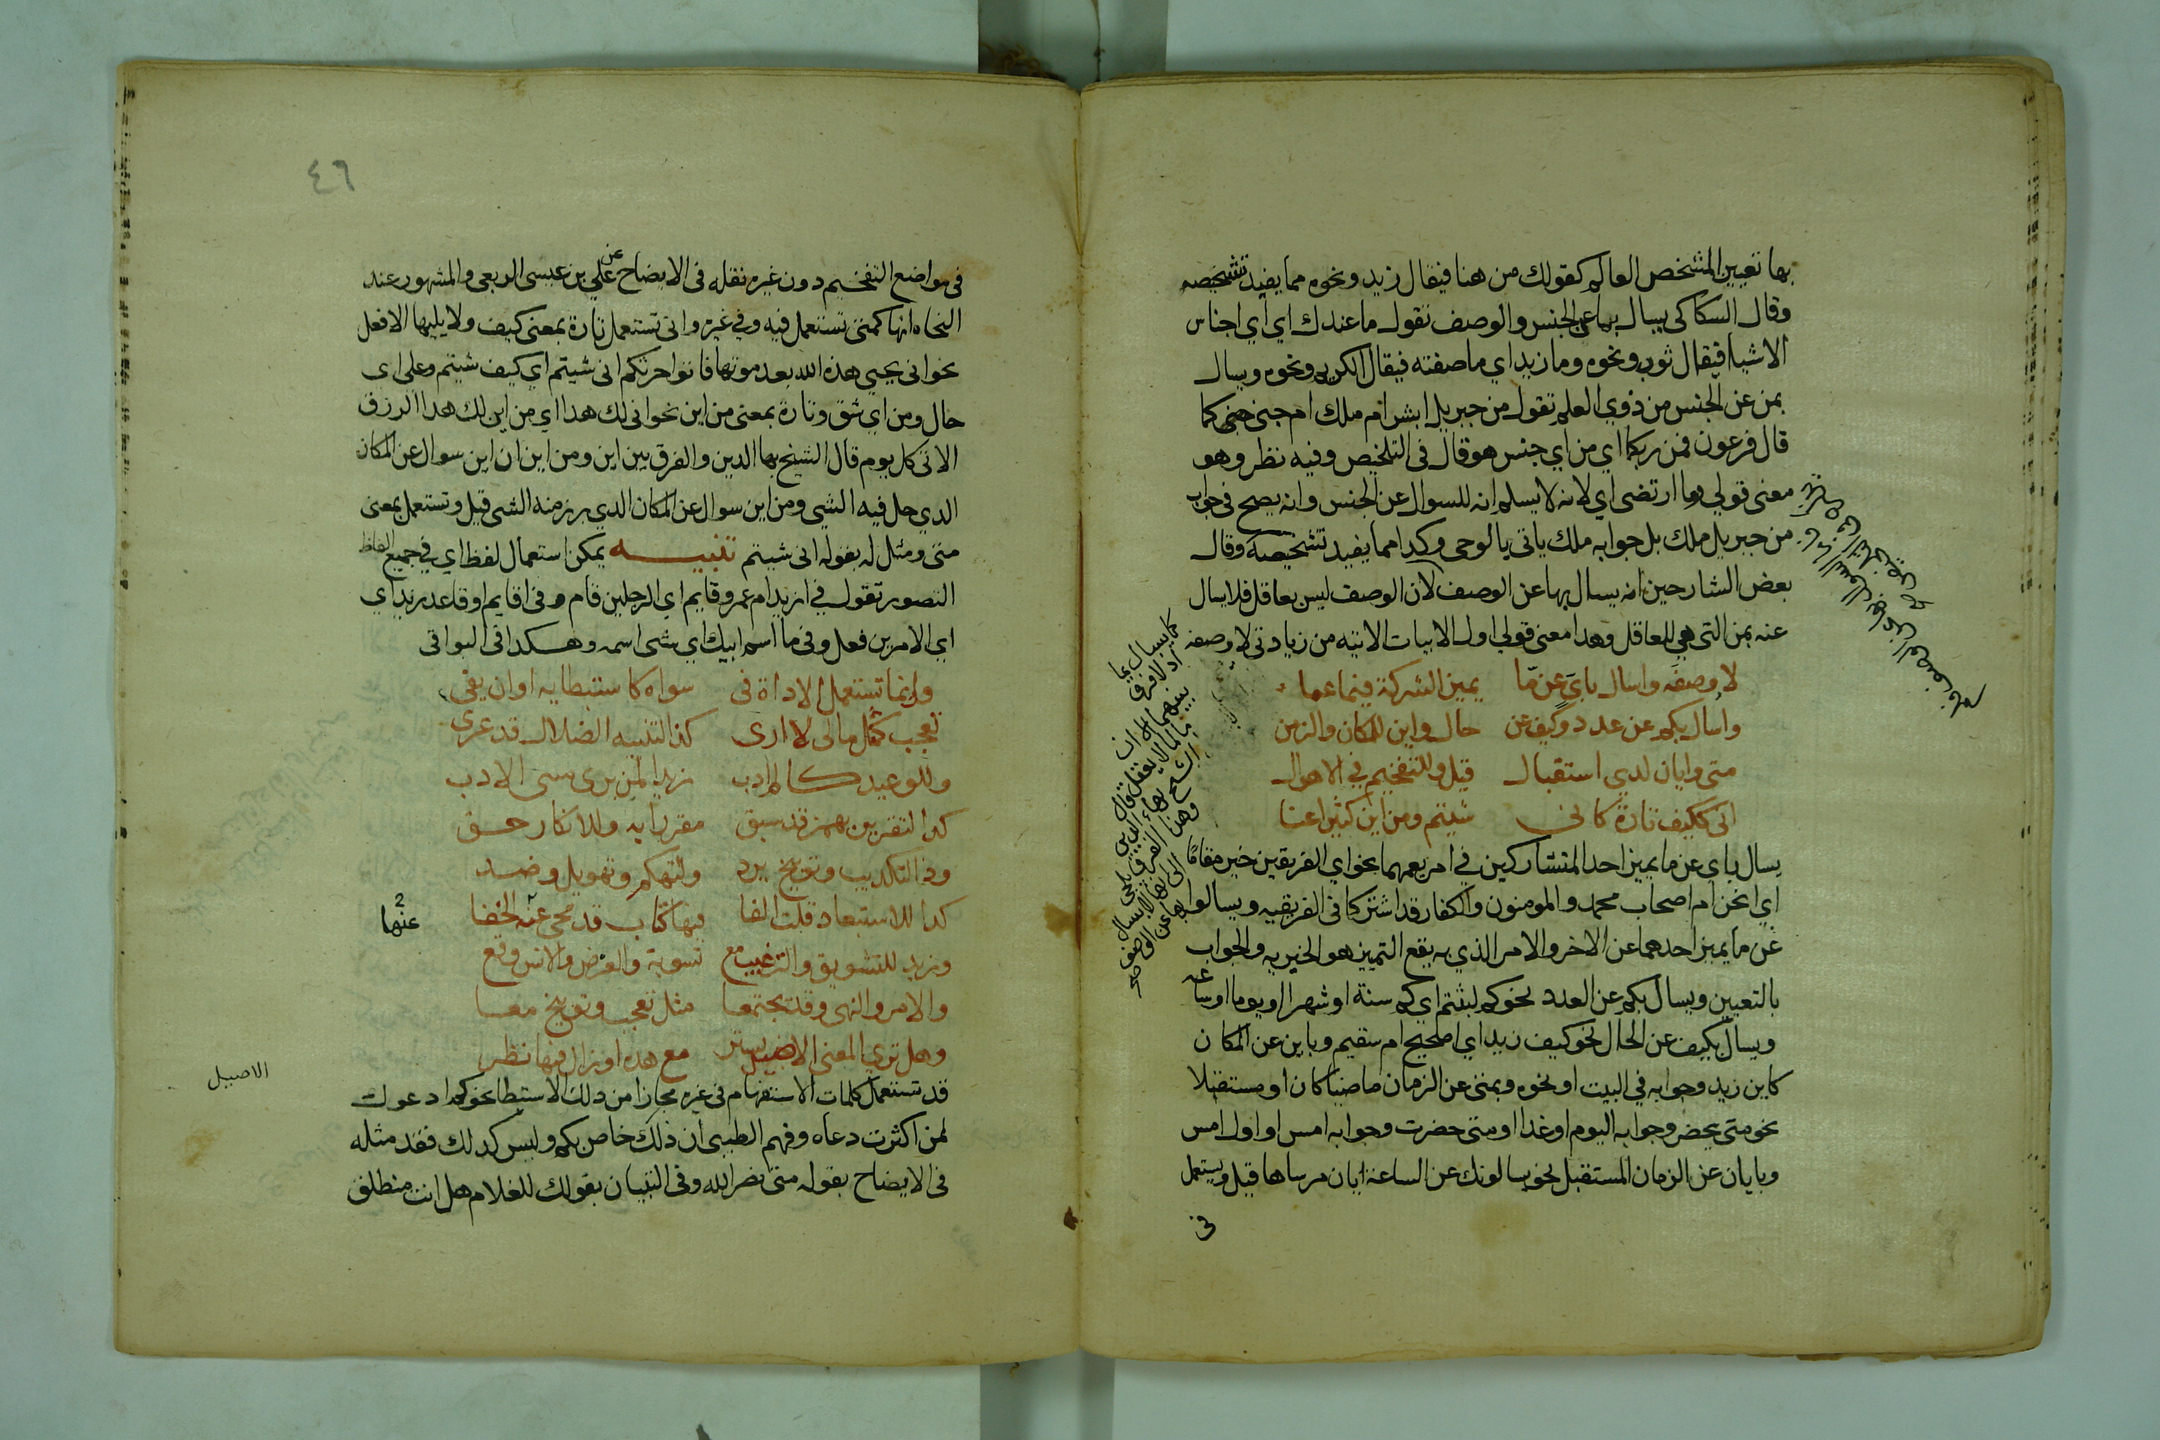 بها تعيين المشخص العالم كقولك من هنا فيقال زيد ونحوه مما يفيد تشخيصه
وقال السكاكى يسال بما عن الجنس والوصف تقول ما عندك اى اي اجناس
الاشيا فيقال ثوب ونحوه وما زيد اي ما صفته فيقال الكريم ونحوه ويسال
بمن عن الجنس من ذوي العلم تقول من جبريل ابشر ام ملك ام جنى كما
قال فرعون فمن ربكما اي من اي جنس هو قال فى التلخيص وفيه نظر وهو
معنى قولي وما ارتضى اي لانه لا يسلم انه للسوال عن الجنس وانه يصح فى جواب
من جبريل ملك بل جوابه ملك ياتى بالوحى وكدا مما يفيد تشخيصه وقال
بعض الشارحين انه يسال بها عن الوصف لان الوصف ليس بعاقل فلا يسال
عنه بمن التى هي للعاقل وهدا معنى قولي اول الابيات الاتيه من زيادتى لا وصفه
لا وصفه واسال باي عن ما يميز الشركة فيما عما
واسال بكم عن عدد وكيف عن حال واين للمكان والزمن
متى وايان لدي استقبال قيل وللتفخيم في الاهوال
انى ككيف تارة كانى شيتم ومن اين كثيرا عنا
يسال باي عن ما يميز احد المتشاركين في امر يعمهما نحو اي الفريقين خير مقاما
اي انحن ام اصحاب محمد والمومنون والكفار قد اشتركا فى الفريقيه ويسالوا بها
عن ما يميز احدهما عن الاخر والامر الذي به يقع التمييز هو الخيريه والجواب
بالتعيين ويسال بكم عن العدد نحو كم لبثتم اي كم سنة او شهرا او يوما او ساعه
ويسال بكيف عن الحال نحو كيف زيد اي اصحيح ام سقيم وباين عن المكان
كاين زيد وجوابه في البيت او نحوه وبمتى عن الزمان ماضيا كان او مستقبلا
نحو متى يحضر وجوابه اليوم او غدا او متى حضرت وجوابه امس او اول امس
وبايان عن الزمان المستقبل نحو يسالونك عن الساعة ايان مرساها قيل ويستعمل
فى
كما يسال بما
اذ لا فرق
بينهما الا ان
ما لما لا يعقل قال
الشيخ بهاء الدين
٤٦
فى مواضع التفخيم دون غيره نقله فى الايضاح عن علي بن عيسى الربعى والمشهور عند
النحاه انها كمتى تستعمل فيه وفي غيره وانى تستعمل تارة بمعنى كيف ولا يليها الا فعل
نحو انى يحيي هذه الله بعد موتها فاتوا حرثكم انى شيتم اي كيف شيتم وعلى اى
حال ومن اي شق وتارة بمعنى من اين نحو انى لك هدا اي من اين لك هدا الرزق
الاتى كل يوم قال الشيخ بها الدين والفرق بين اين ومن اين ان اين سوال عن المكان
الدي حل فيه الشي ومن اين سوال عن المكان الدي برز منه الشى قيل وتستعمل بمعنى
متى ومثل له بقوله انى شيتم تنبيــه يمكن استعمال لفظ اي في جميع الفاظ
التصور تقول في ازيد ام عمرو قايم اي الرجلين قام وفى اقايم او قاعد زيد اي
اي الامرين فعل وفى ما اسم ابيك اي شى اسمه وهكدا فى البواقى
وانما تستعمل الاداة فى سواه كاستبطايه او ان يفى
تعجب كمثل مالى لا ارى كذا لتنبيه الضلال قد عرى
وللوعيد كالم ادب زيدا لمن يرى مسى الادب
كدا لتقرير بهمز قد سبق مقررا به وللانكار حق
وذا لتكذيب وتوبيخ يرد ولتهكم وتهويل وضد
كدا للاستبعاد قلت الفا فيها كتاب قد محى عنه الخفا
عنها
وزيد للتشويق والترغيب مع تسوية والعرض والانس وقع
والامر والنهى وقد يجتمعا مثل تعجب وتوبيخ معا
وهل ترى المعنى الاصيل يستتر مع هده او زال فيها نظر
الاصيل
قد تستعمل كلمات الاستفهام فى غيره مجازا من ذلك الاستبطا نحو كم ادعوك
لمن اكثرت دعاه وفهم الطيبى ان ذلك خاص بكم وليس كدلك فقد مثله
فى الايضاح بقوله متى نصر الله وفى التبيان بقولك للغلام هل انت منطلق